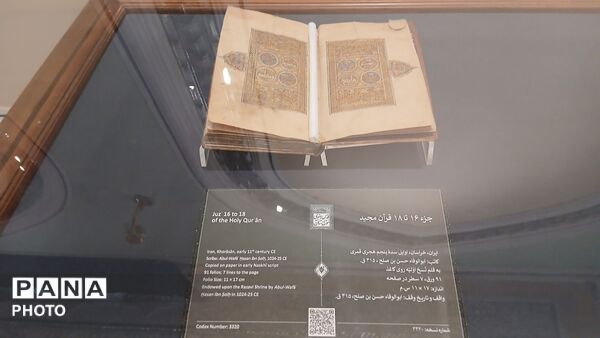 Juz' 16 to 18
of the Holy Qur'ān
Iran, Khorāsān, early 11th century CE
Scribe: Abul-Wafā Hasan ibn Ṣalḥ, 1024-25 CE
Copied on paper in early Naskhī script
91 folios; 7 lines to the page
Folio Size: 11 × 17 cm
Endowed upon the Razavi Shrine by Abul-Wafā
Hasan ibn Ṣalḥ in 1024-25 CE
Codex Number: 3320
جزء ۱۶ تا ۱۸ قرآن مجید
ایران، خراسان، اوایل سدهٔ پنجم هجری قمری
کاتب: ابوالوفاء حسن بن صلح، ۴۱۵ ق.
به قلم نسخ اولیه روی کاغذ
۹۱ ورق، ۷ سطر در صفحه
اندازه: ۱۷ × ۱۱ س.م
واقف و تاریخ وقف: ابوالوفاء حسن بن صلح، ۴۱۵ ق.
شماره نسخه: ۳۳۲۰
PANA
PHOTO